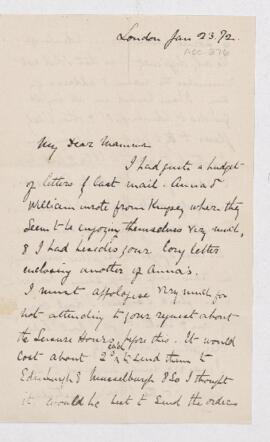 London Jan 23. /92.
ACC 376
My Dear Mamma
I had quite a budget
of letters of last mail. Anna &
William wrote from where they
seem to be enjoying themselves very much,
& I had besides your long letter
enclosing another of Anna's.
I must apologise very much for
not attending to your request about
the Leisure Hours before this. It would
cost about 2 each to send them to
Edinburgh & Musselburgh & so I thought
it would be best to send the orders